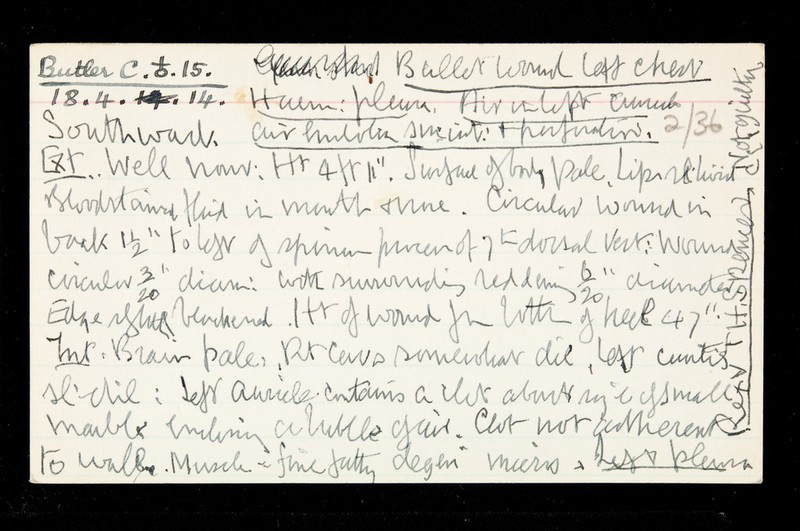 Butler C. 15.
Bullet wound left chest
18.4.14.
Haem: pleura. Air in left auricle
Southwark.
air embolism & perforation.
2/36
Ext. Well nour: Ht 4ft 11". Surface of body pale, Lips sl: livid
Bloodstained fluid in mouth & nose. Circular wound in
back 1½" to left of spinous process of 7th dorsal vert: Wound
circular 3/20" diam: with surrounding reddening 6/20" diameter
Edge slightly blackened. Ht of wound from bottom of heel 47".
Int. Brain pale, Rt cavs somewhat dil, left cavities
sl: dil: left auricle contains a clot about size of small
marble enclosing a bubble of air. Clot not adherent
to wall. Muscle fine fatty degen micros. Left pleura
Rex v T H. Spencer. Not guilty